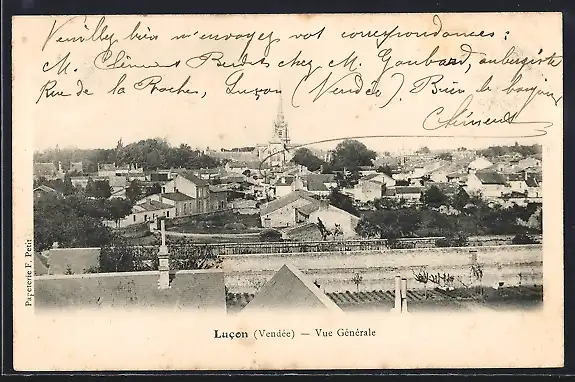 Veuillez bien m'envoyer vos correspondances :
M. Clément chez M. Gaubard, aubergiste
Rue de la Roche, Luçon (Vendée). Bien le bonjour,
Clément
Papeterie F. Petit
Luçon (Vendée) — Vue Générale